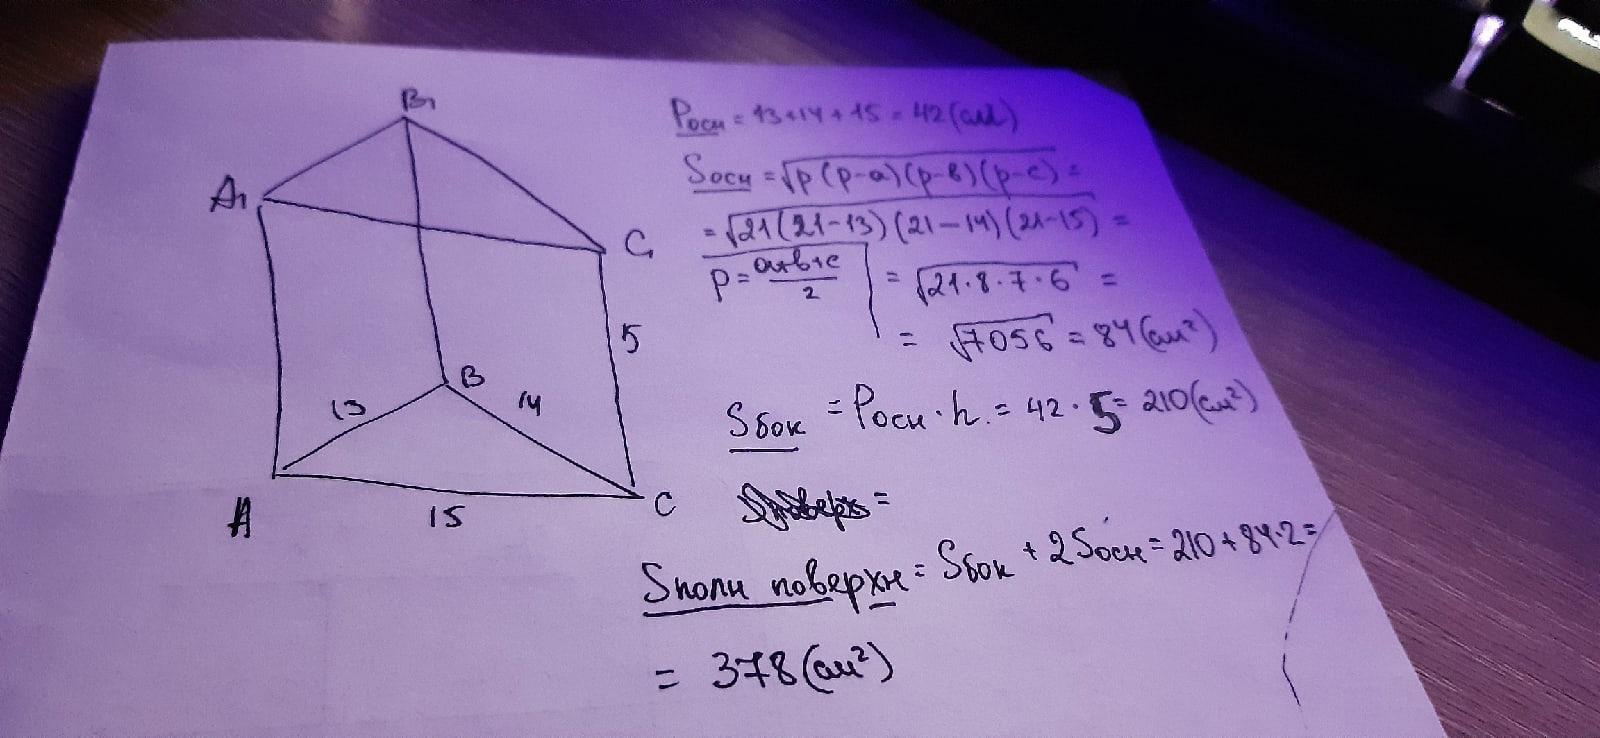 B₁
A₁
C₁
5
B
13
14
A
15
C
Pосн = 13+14+15 = 42(см)
Sосн = √p(p-a)(p-b)(p-c) =
= √21(21-13)(21-14)(21-15) =
p = a+b+c/2
= √21·8·7·6 =
= √7056 = 84(см²)
Sбок = Pосн·h. = 42·5 = 210(см²)
=
Sполн поверхн = Sбок + 2Sосн = 210+84·2=
= 378(см²)